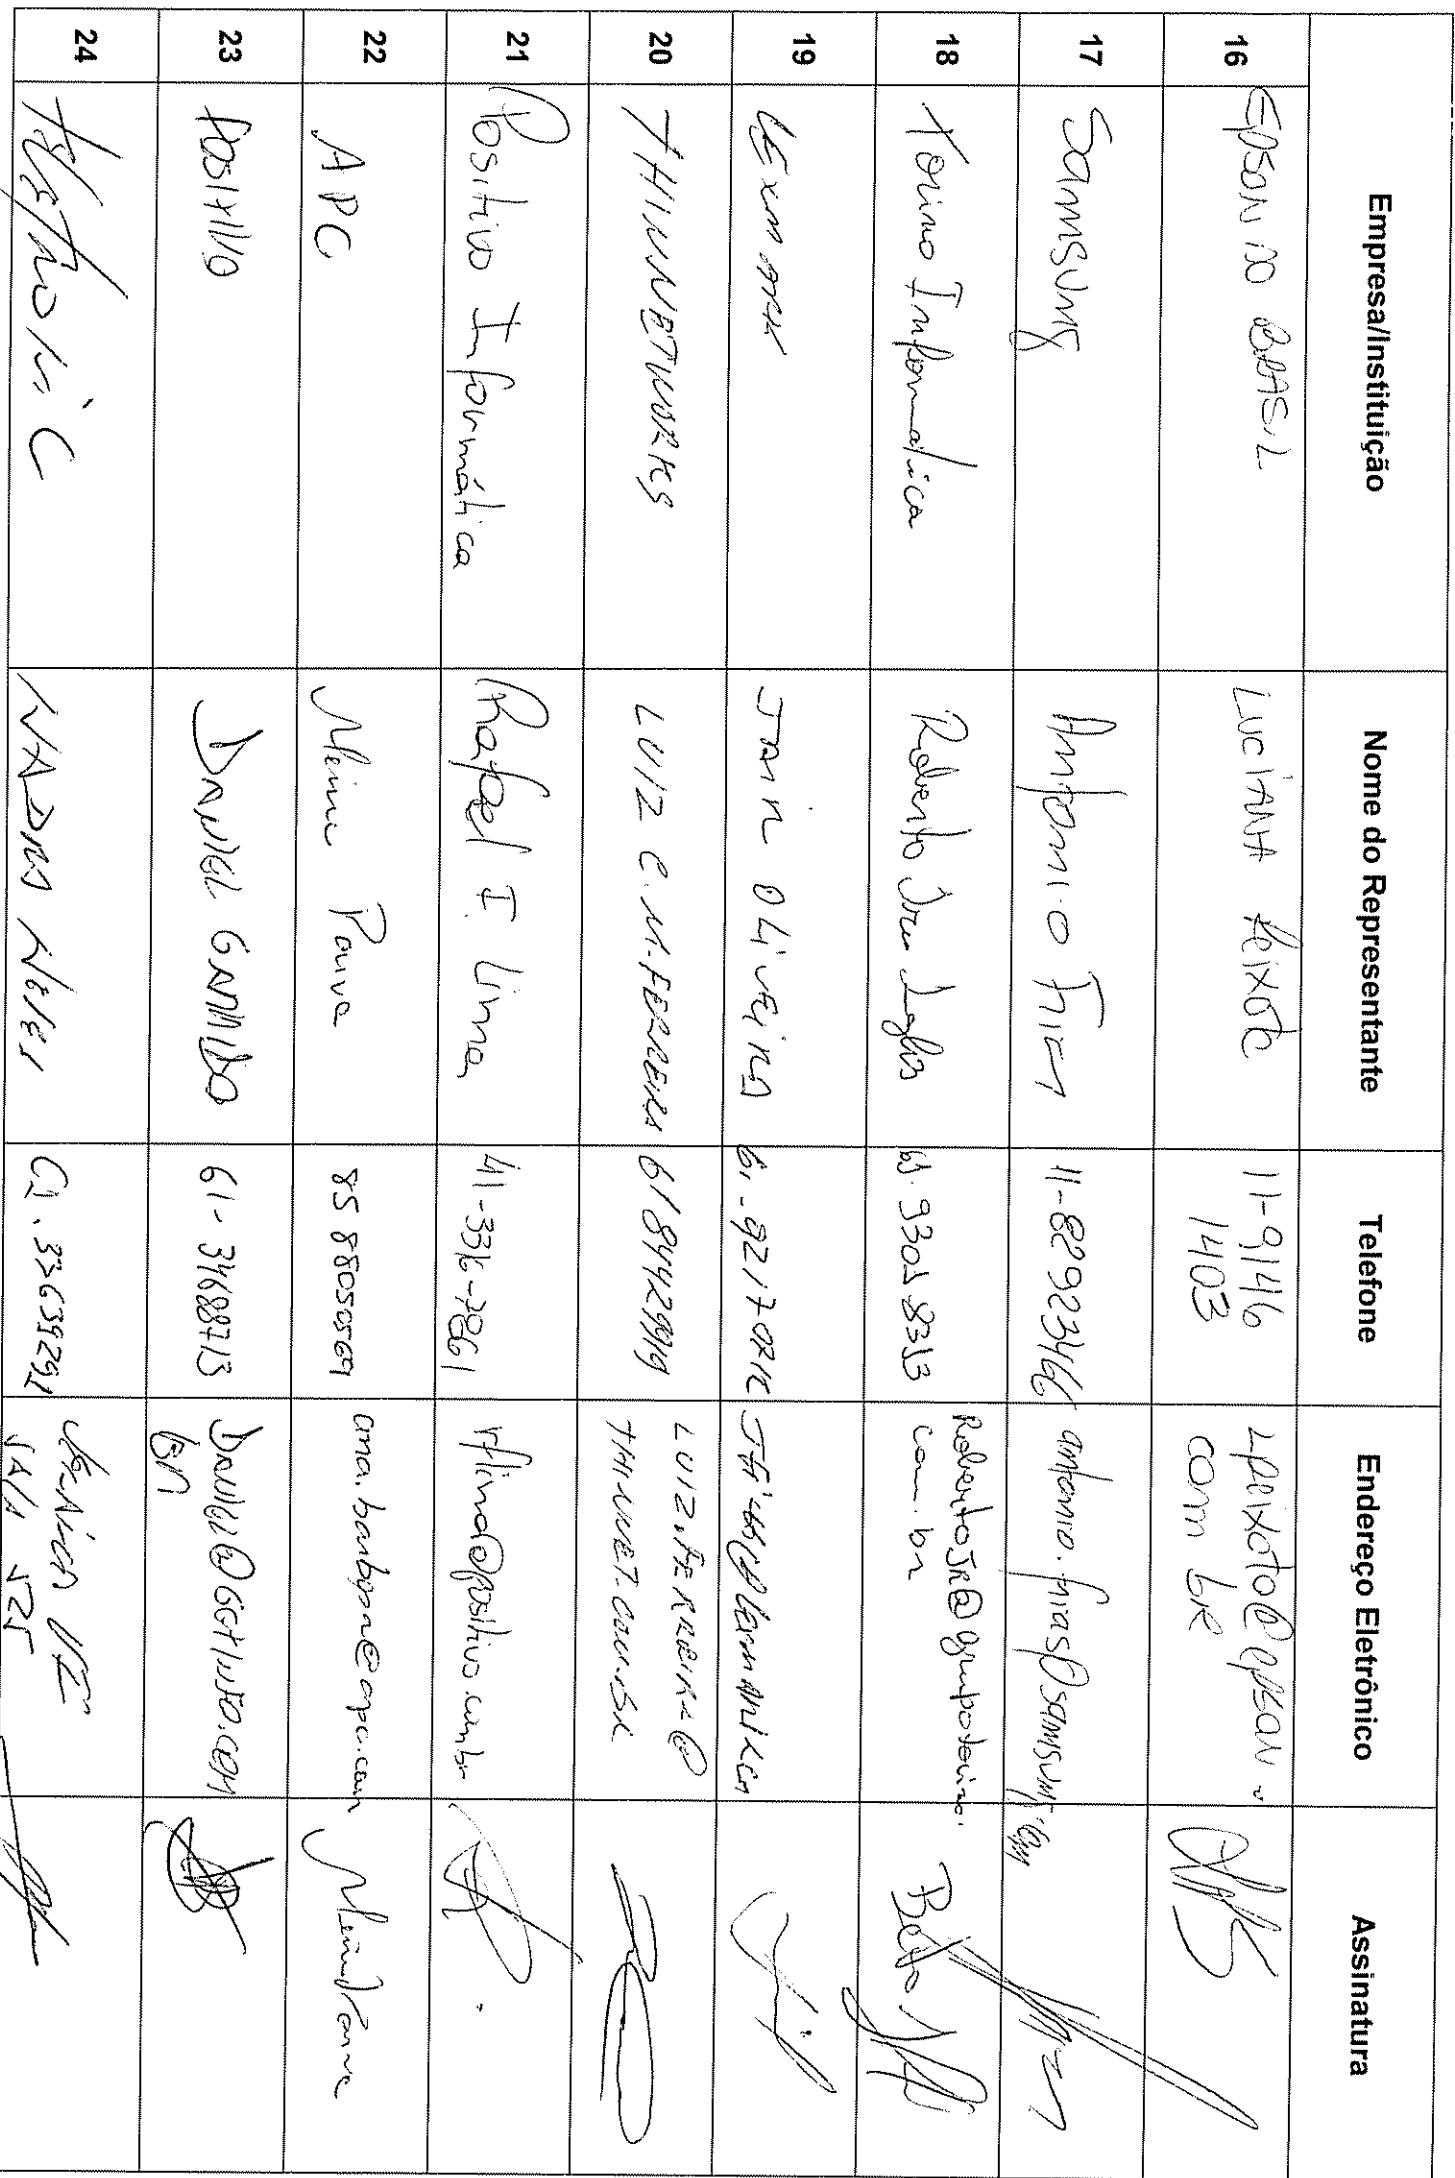 Empresa/Instituição Nome do Representante Telefone Endereço Eletrônico Assinatura
16 EPSON DO BRASIL LUCIANA Peixoto 11-9146 1403 Lpeixoto@epson. com br
17 Samsung Antonio 11-82923466 antonio.firasp@samsung.com
18 Torino Informatica Roberto 61. 9305 8313 RobertoJR@grupotorino. com.br
19 LExmARK JAIR OLIVEIRA
20 THINNETWORKS LUIZ C. M. FERREIRA 61 84429919 LUIZ.FERREIRA@ THINNET.COM.BR
21 Positivo Informática Rafael I. Lima 41-3316-7861 rflima@positivo.com.br
22 APC Paiva 85 88050569 ana.barbosa@apc.com
23 POSITIVO DANIEL GARRIDO 61-34688713 DANIEL@GGTINFO.COM BR
24 61. 33639292